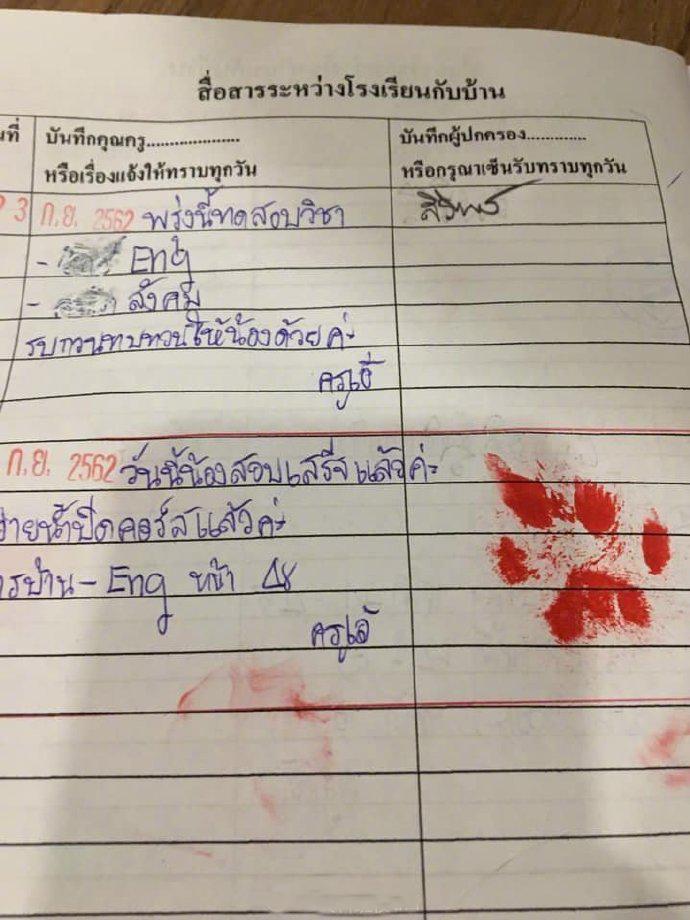 สื่อสารระหว่างโรงเรียนกับบ้าน
บันทึกคุณครู.................... บันทึกผู้ปกครอง.............
หรือเรื่องแจ้งให้ทราบทุกวัน หรือกรุณาเซ็นรับทราบทุกวัน
3 ก.ย. 2562 พรุ่งนี้ทดสอบวิชา
- Eng
- สังคม
รบกวนทบทวนให้น้องด้วยค่ะ
ก.ย. 2562 วันนี้น้องสอบเสร็จแล้วค่ะ
ปิดคอร์สแล้วค่ะ
Eng หน้า